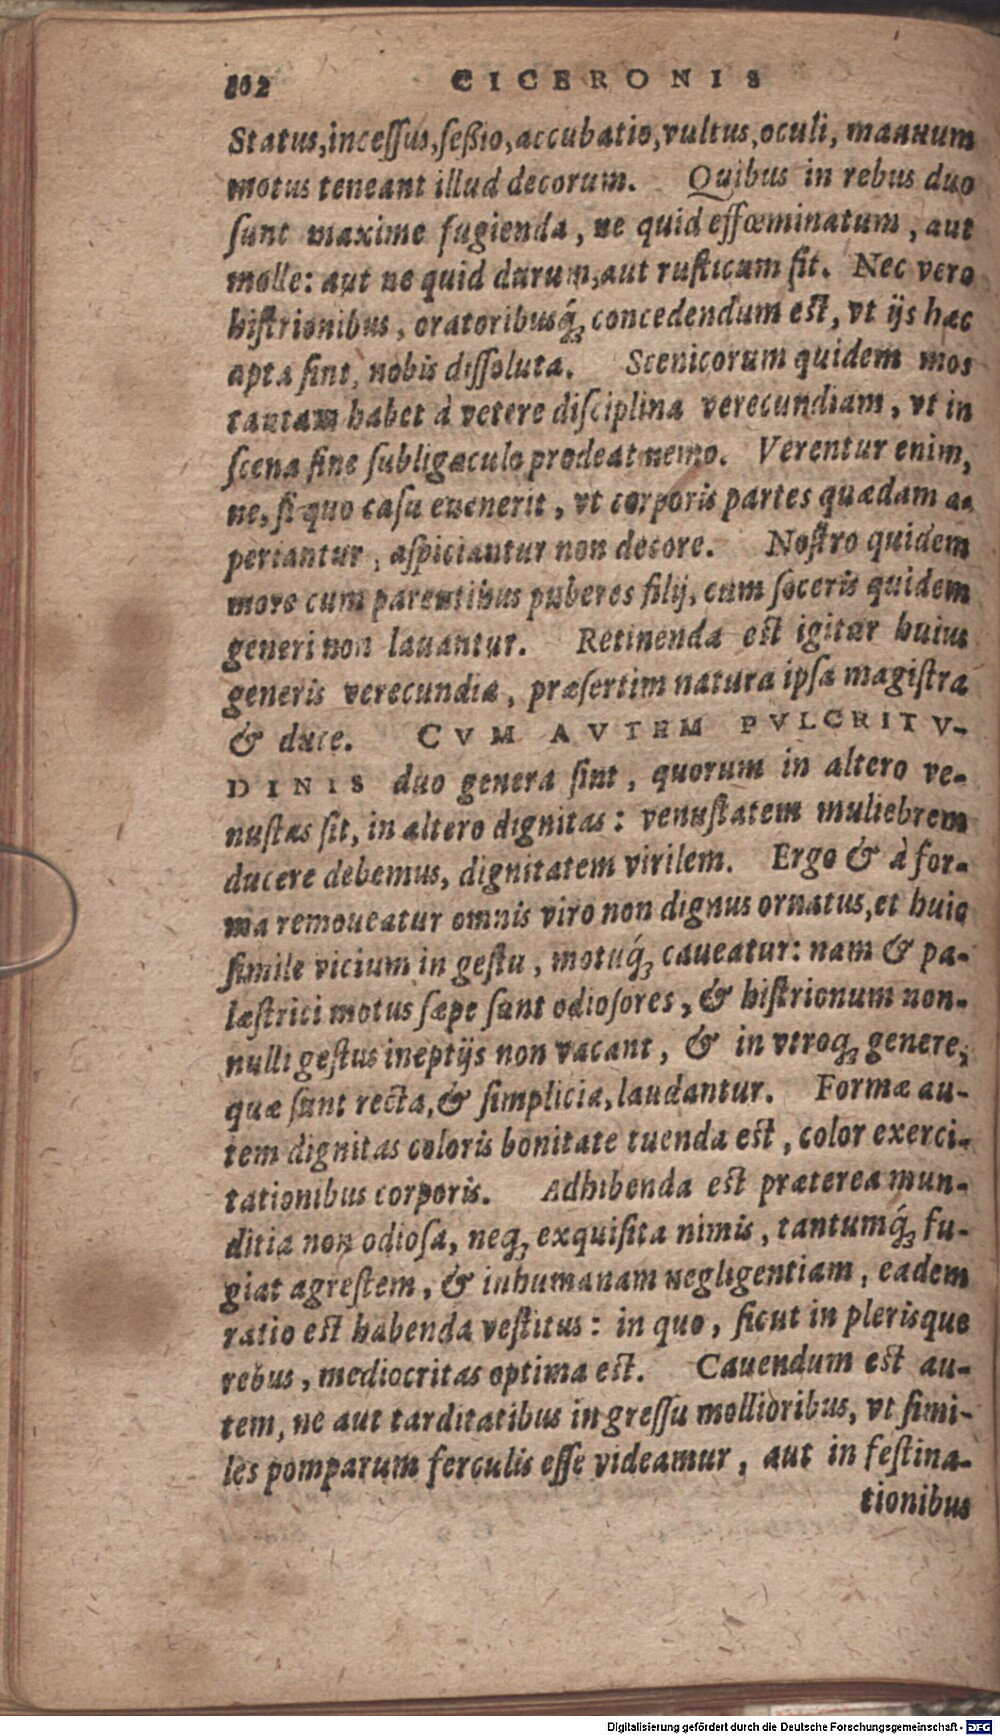 102 CICERONIS
Status,incessus,seßio,accubatio,vultus,oculi, manuum
motus teneant illud decorum. Quibus in rebus duo
sunt maxime fugienda, ne quid effœminatum, aut
molle: aut ne quid durum,aut rusticum sit. Nec vero
histrionibus, oratoribusq́; concedendum est, vt ijs hæc
apta sint, nobis dissoluta. Scenicorum quidem mos
tantam habet à vetere disciplina verecundiam, vt in
scena sine subligaculo prodeat nemo. Verentur enim,
ne, si quo casu euenerit, vt corporis partes quædam a-
periantur, aspiciantur non decore. Nostro quidem
more cum parentibus puberes filij, cum soceris quidem
generi non lauantur. Retinenda est igitur huius
generis verecundia, præsertim natura ipsa magistra
& duce. CVM AVTEM PVLCRITV-
DINIS duo genera sint, quorum in altero ve-
nustas sit, in altero dignitas: venustatem muliebrem
ducere debemus, dignitatem virilem. Ergo & à for-
ma remoueatur omnis viro non dignus ornatus,et huic
simile vicium in gestu, motuq́; caueatur: nam & pa-
læstrici motus sæpe sunt odiosores, & histrionum non-
nulli gestus ineptijs non vacant, & in vtroq; genere,
quæ sunt recta,& simplicia,laudantur. Formæ au-
tem dignitas coloris bonitate tuenda est, color exerci-
tationibus corporis. Adhibenda est præterea mun-
ditia non odiosa, neq; exquisita nimis, tantumq́; fu-
giat agrestem, & inhumanam negligentiam, eadem
ratio est habenda vestitus: in quo, sicut in plerisque
rebus, mediocritas optima est. Cauendum est au-
tem, ne aut tarditatibus ingressu mollioribus, vt simi-
les pomparum ferculis esse videamur, aut in festina-
tionibus
Digitalisierung gefördert durch die Deutsche Forschungsgemeinschaft - DFG